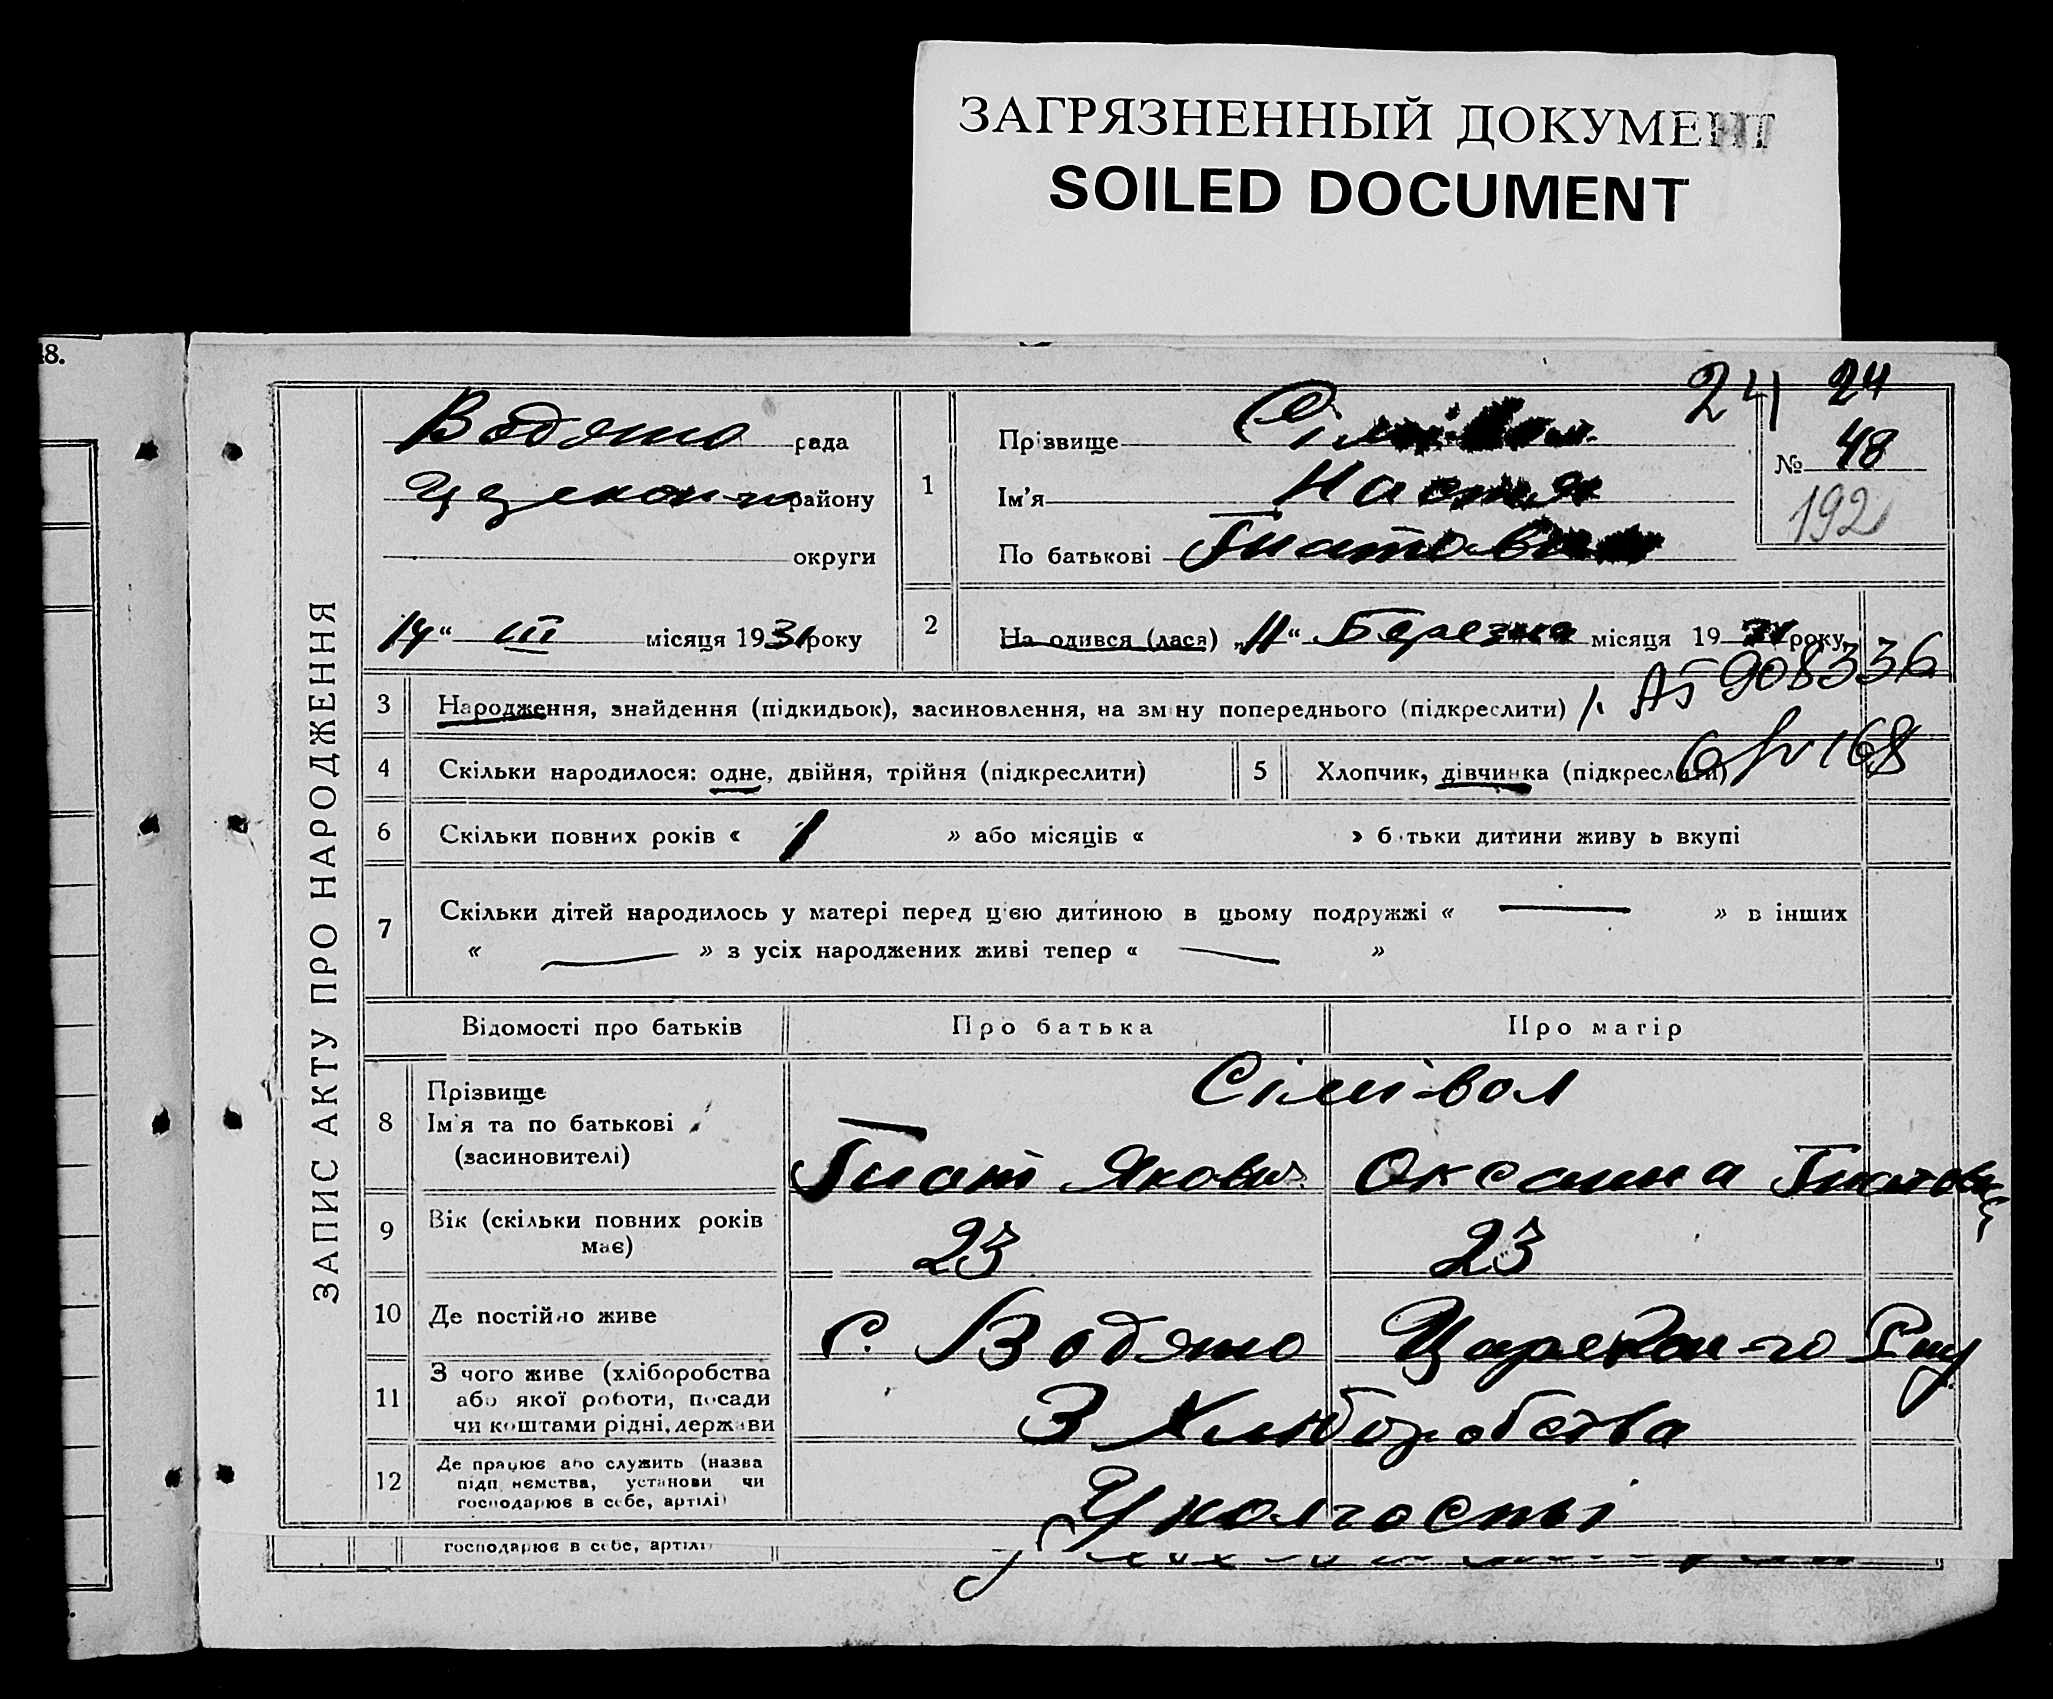 ЗАГРЯЗНЕННЫЙ ДОКУМЕНТ
SOILED DOCUMENT
48.
24 24
Водяно рада
району
округи
14 “ III місяця 1931 року
1
Прізвище
Ім’я Настя
По батькові Гнатовна
№ 48
192
2 На одився (лася) „11“ Березня місяця 19 31 року
ЗАПИС АКТУ ПРО НАРОДЖЕННЯ
3 Народження, знайдення (підкидьок), засиновлення, на зміну попереднього (підкреслити) 1. АБ 908336
4 Скільки народилося: одне, двійня, трійня (підкреслити) 5 Хлопчик, дівчинка (підкреслити)
6 Скільки повних років « 1 » або місяців « » батьки дитини живуть вкупі
7 Скільки дітей народилось у матері перед цією дитиною в цьому подружжі « — » в інших
« — » з усіх народжених живі тепер « — »
Відомості про батьків Про батька Про матір
8 Прізвище Сімівол
Ім’я та по батькові Гнат Якович Оксанна
(засиновителі)
9 Вік (скільки повних років має) 23 23
10 Де постійно живе с. Водяно Царекон-го Р-ну
11 З чого живе (хліборобства або якої роботи, посади чи коштами рідні, держави З Хліборобства
12 Де працює або служить (назва підприємства, установи чи господарює в себе, артілі) У колгоспі
господарює в себе, артілі